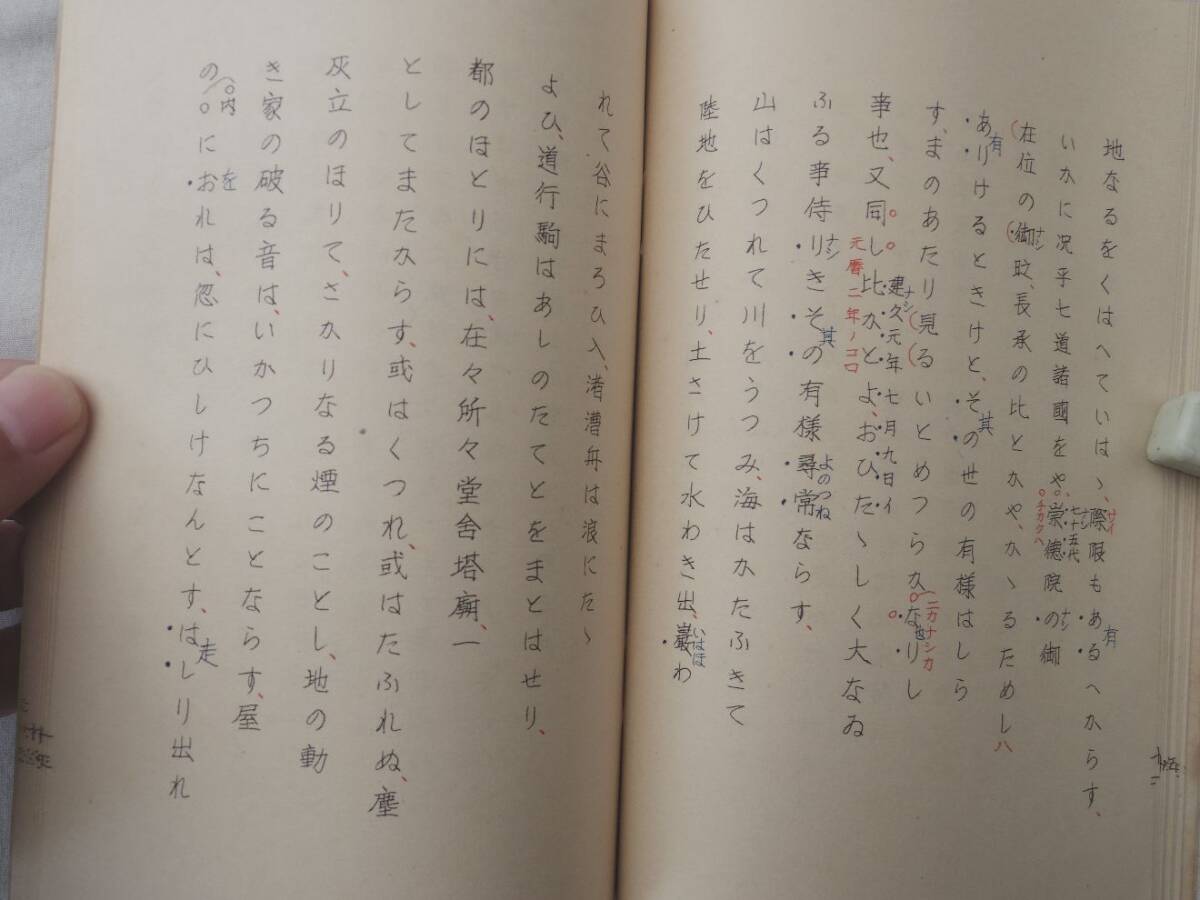 地なるをくはへていはゝ、際限もあるへからす、
サイ
有
いかに況乎七道諸國をや、崇徳院の御
七十五代
ナシ
ナシ
チカクヘ
(在位の(御時、長承の比とかや、かゝるためし
ナシ
ハ
ありけるときけと、その世の有様はしら
有
其
す、まのあたり見るいとめつらかなりし
ニカナシカ
也
事也、又同し比かとよ、おひたゝしく大なゐ
建久元年七月九日イ
ナシ
元暦二年ノコロ
ふる事侍りきその有様尋常ならす、
ナシ
其
よのつね
山はくつれて川をうつみ、海はかたふきて
陸地をひたせり、土さけて水わき出、巖わ
いはほ
れて谷にまろひ入、渚漕舟は浪にたゝ
よひ、道行駒はあしのたてとをまとはせり、
都のほとりには、在々所々堂舎塔廟、一
としてまたからす、或はくつれ、或はたふれぬ、塵
灰立のほりて、さかりなる煙のことし、地の動
き家の破る音は、いかつちにことならす、屋
の○におれは、忽にひしけなんとす、はしり出れ
(○内
を
走